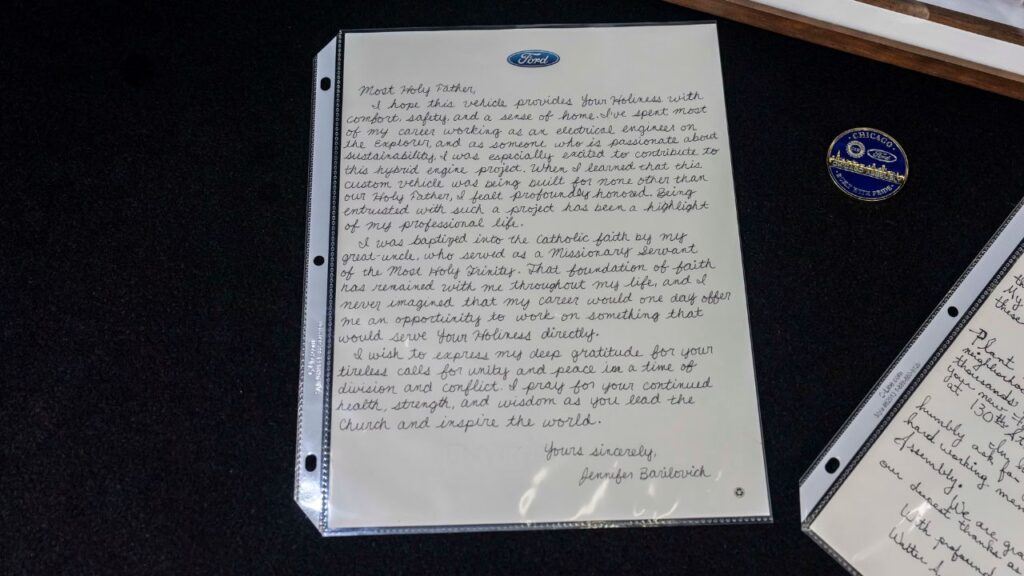 Ford
Most Holy Father,
I hope this vehicle provides Your Holiness with
comfort, safety, and a sense of home. I've spent most
of my career working as an electrical engineer on
the Explorer, and as someone who is passionate about
sustainability, I was especially excited to contribute to
this hybrid engine project. When I learned that this
custom vehicle was being built for none other than
our Holy Father, I fealt profoundly honored. Being
entrusted with such a project has been a highlight
of my professional life.
I was baptized into the Catholic faith by my
great-uncle, who served as a Missionary Servant
of the Most Holy Trinity. That foundation of faith
has remained with me throughout my life, and I
never imagined that my career would one day offer
me an opportunity to work on something that
would serve Your Holiness directly.
I wish to express my deep gratitude for your
tireless calls for unity and peace in a time of
division and conflict. I pray for your continued
health, strength, and wisdom as you lead the
Church and inspire the world.
Yours sincerely,
Jennifer Barilovich
CHICAGO
Ford
BUILT WITH PRIDE
Plant
thousands
your new
at 130th
humbly
ask for
hard working
Assembly.
We are
our deepest thanks as
With profound